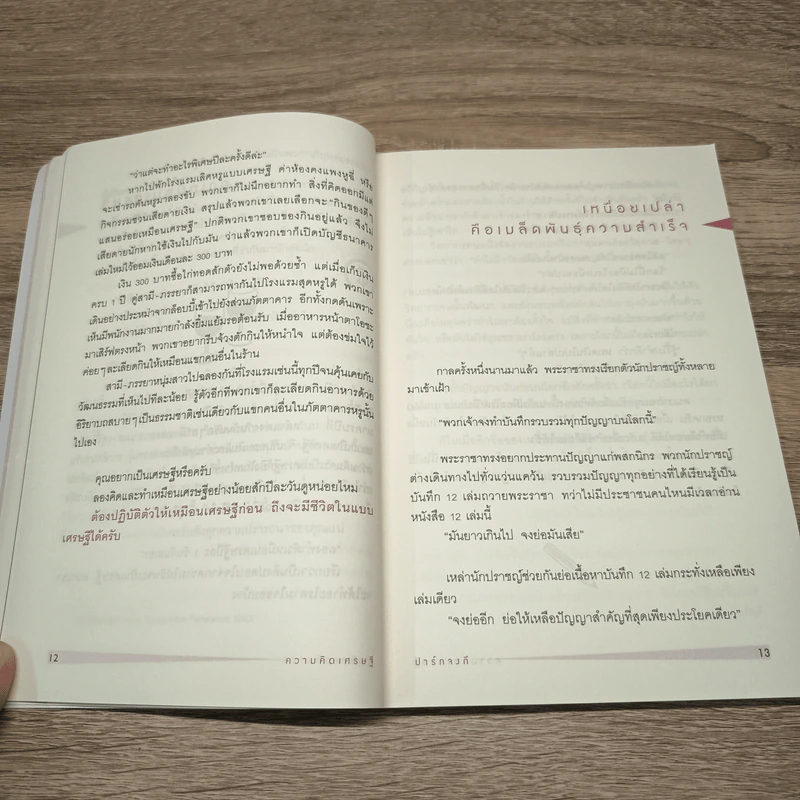 "ว่าแต่จะทำอะไรพิเศษปีละครั้งดีล่ะ"
หากไปพักโรงแรมเลิศหรูแบบเศรษฐี ค่าห้องคงแพงหูฉี่ หรือ
จะเช่ารถคันหรูมาลองขับ พวกเขาก็ไม่นึกอยากทำ สิ่งที่คิดออกมีแต่
กิจกรรมชวนเสียดายเงิน สรุปแล้วพวกเขาเลยเลือกจะ "กินของดีๆ
แสนอร่อยเหมือนเศรษฐี" ปกติพวกเขาชอบของกินอยู่แล้ว จึงไม่
เสียดายนักหากใช้เงินไปกับมัน ว่าแล้วพวกเขาก็เปิดบัญชีธนาคาร
เล่มใหม่ไว้ออมเงินเดือนละ 300 บาท
เงิน 300 บาทซื้อไก่ทอดสักตัวยังไม่พอด้วยซ้ำ แต่เมื่อเก็บเงิน
ครบ 1 ปี คู่สามี-ภรรยาก็สามารถพากันไปโรงแรมสุดหรูได้ พวกเขา
เดินอย่างประหม่าจากล็อบบี้เข้าไปยังส่วนภัตตาคาร อีกทั้งกดดันเพราะ
เห็นมีพนักงานมากมายกำลังยิ้มแย้มรอต้อนรับ เมื่ออาหารหน้าตาโอชะ
มาเสิร์ฟตรงหน้า พวกเขาอยากรีบจ้วงตักกินให้หนำใจ แต่ต้องข่มใจไว้
ค่อยๆ ละเลียดกินให้เหมือนแขกคนอื่นในร้าน
สามี-ภรรยาหนุ่มสาวไปฉลองกันที่โรงแรมเช่นนี้ทุกปีจนคุ้นเคยกับ
วัฒนธรรมที่เห็นไปทีละน้อย รู้ตัวอีกทีพวกเขาก็ละเลียดกินอาหารด้วย
อิริยาบถสบายๆ เป็นธรรมชาติเช่นเดียวกับแขกคนอื่นในภัตตาคารหรูนั้น
ไปเอง
คุณอยากเป็นเศรษฐีหรือครับ
ลองคิดและทำเหมือนเศรษฐีอย่างน้อยสักปีละวันดูหน่อยไหม
ต้องปฏิบัติตัวให้เหมือนเศรษฐีก่อน ถึงจะมีชีวิตในแบบ
เศรษฐีได้ครับ
12
ความคิดเศรษฐี
เหนื่อยเปล่า
คือเมล็ดพันธุ์ความสำเร็จ
กาลครั้งหนึ่งนานมาแล้ว พระราชาทรงเรียกตัวนักปราชญ์ทั้งหลาย
มาเข้าเฝ้า
"พวกเจ้าจงทำบันทึกรวบรวมทุกปัญญาบนโลกนี้"
พระราชาทรงอยากประทานปัญญาแก่พสกนิกร พวกนักปราชญ์
ต่างเดินทางไปทั่วแว่นแคว้น รวบรวมปัญญาทุกอย่างที่ได้เรียนรู้เป็น
บันทึก 12 เล่มถวายพระราชา ทว่าไม่มีประชาชนคนไหนมีเวลาอ่าน
หนังสือ 12 เล่มนี้
"มันยาวเกินไป จงย่อมันเสีย"
เหล่านักปราชญ์ช่วยกันย่อเนื้อหาบันทึก 12 เล่มกระทั่งเหลือเพียง
เล่มเดียว
"จงย่ออีก ย่อให้เหลือปัญญาสำคัญที่สุดเพียงประโยคเดียว"
ปาร์กจงกี
13